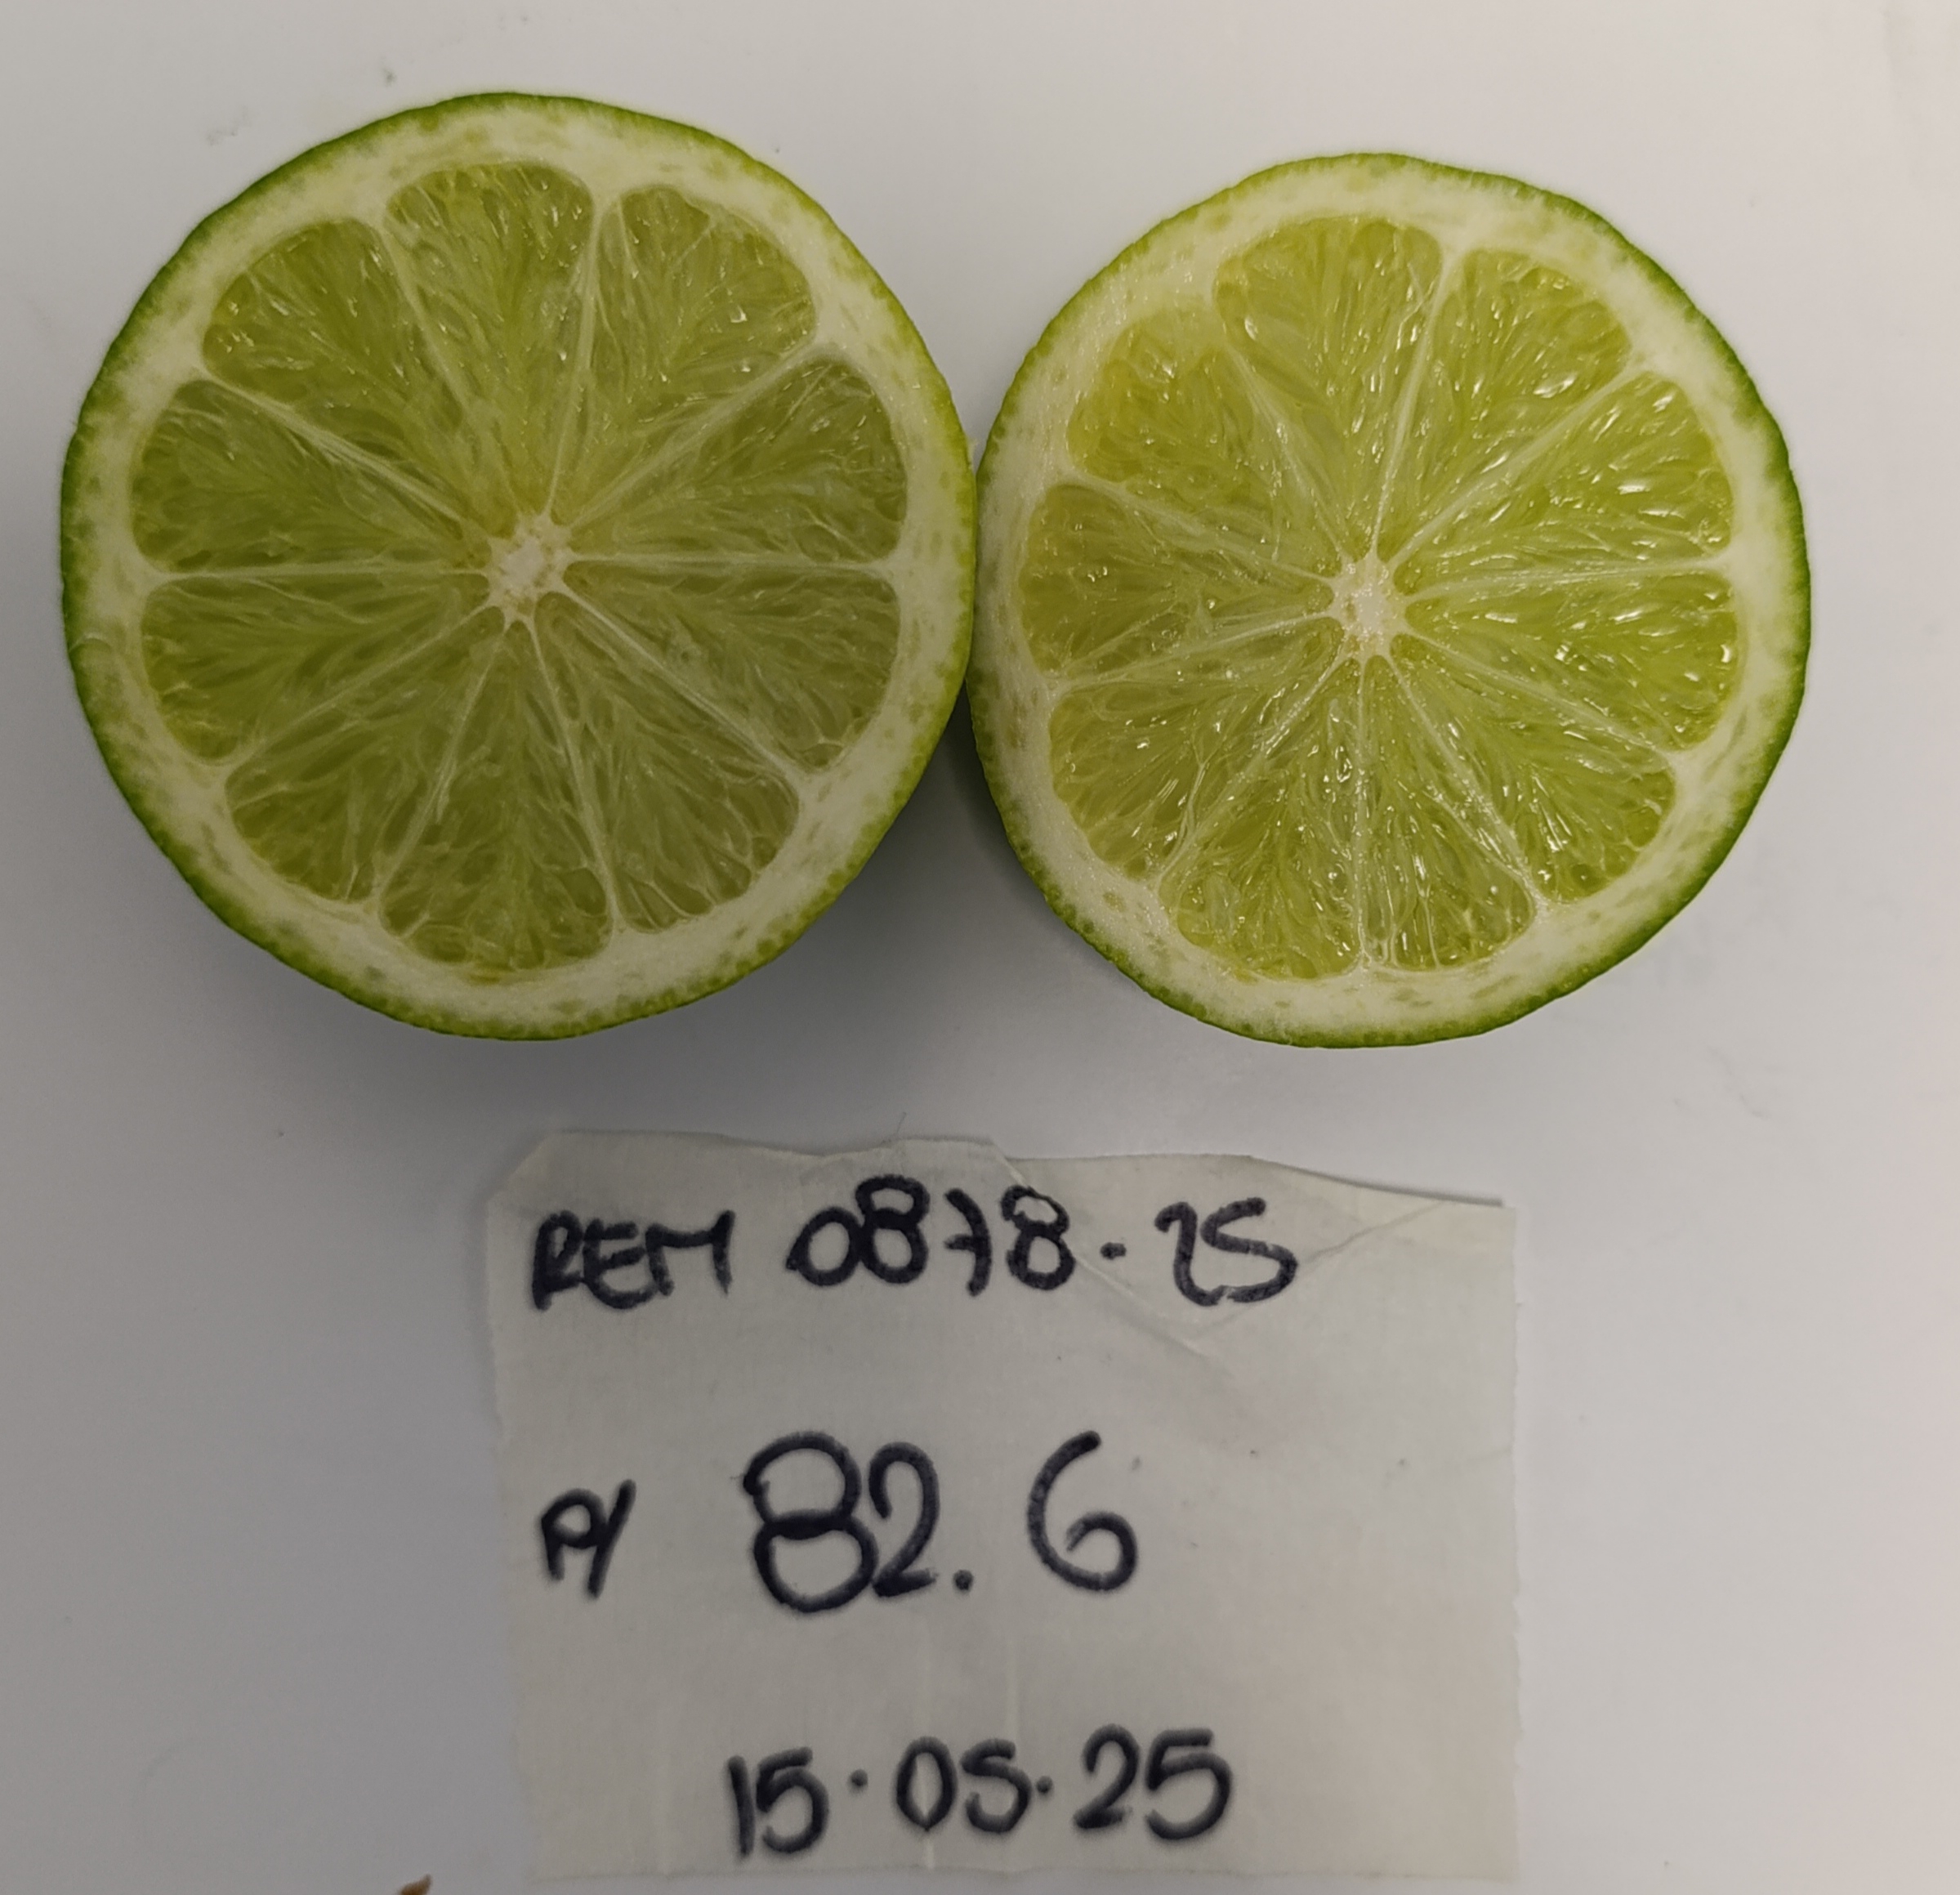 REM 0878-25
P/ 82.6
15.05.25